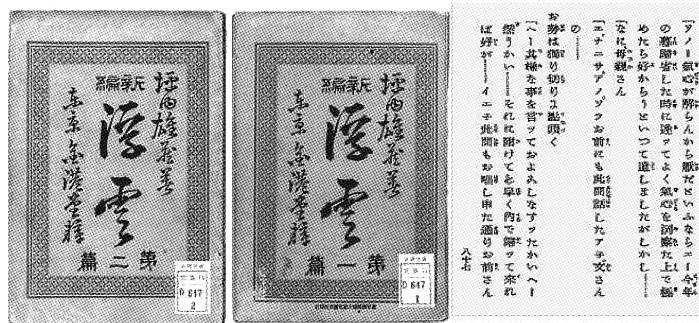 坪内雄藏著
新編
浮雲
東京 金港堂梓
第二篇
D 647
2
坪内雄藏著
新編
浮雲
東京 金港堂梓
第一篇
D 647
1
「アノー氣心が解らんから厭だといふならエー今年
の暑歸省した時に逢ッてよく氣心を洞察た上で極
めたら好からうといつて遣しましたがしかし……
「なに母親さん
「エ、ナニサアノゾラお前にも此間話したアノ子
の……
お勢は獨り切りよ點頭く
「ヘー其樣な事を言ッておよこしなすッたかいヘー
然うかい……それに附けても早く内で歸ッて來れ
ば好が……イエネ此間もお噂し申た通りお前さん
八十七